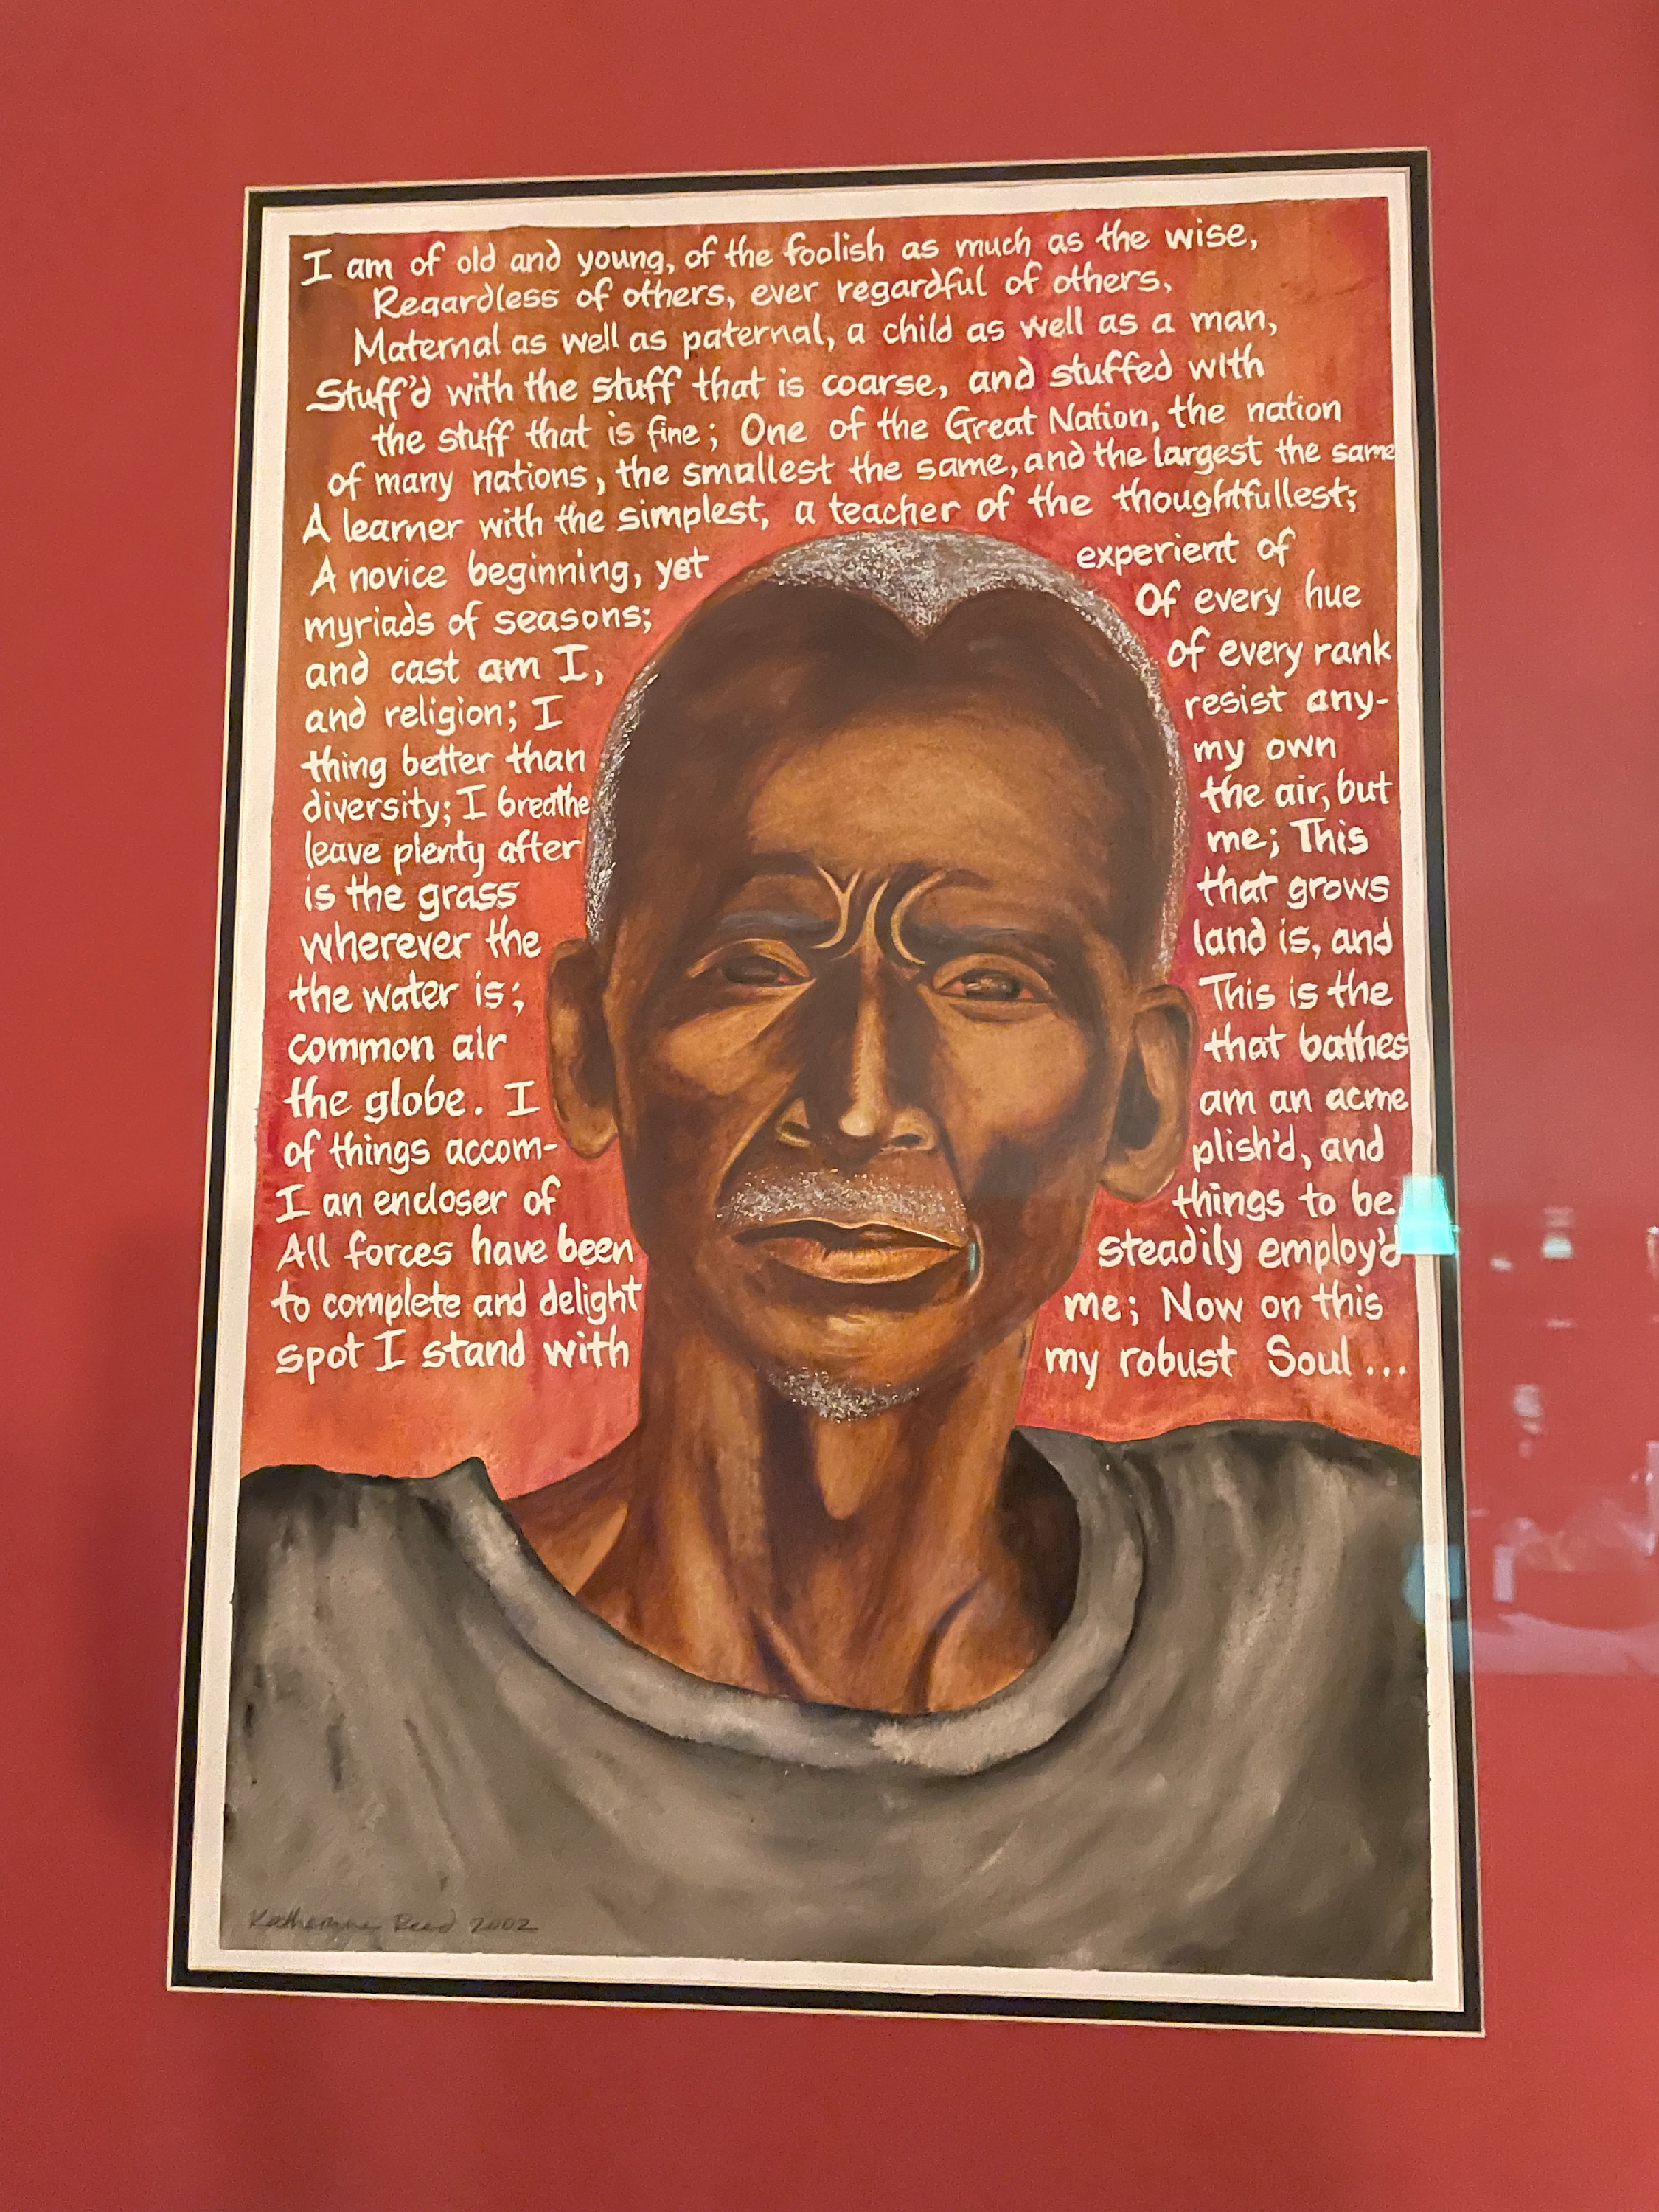 I am of old and young, of the foolish as much as the wise,
Regardless of others, ever regardful of others,
Maternal as well as paternal, a child as well as a man,
Stuff'd with the stuff that is coarse, and stuffed with
the stuff that is fine; One of the Great Nation, the nation
of many nations, the smallest the same, and the largest the same
A learner with the simplest, a teacher of the thoughtfullest;
A novice beginning, yet experient of
myriads of seasons; Of every hue
and cast am I, of every rank
and religion; I resist any-
thing better than my own
diversity; I breathe the air, but
leave plenty after me; This
is the grass that grows
wherever the land is, and
the water is; This is the
common air that bathes
the globe. I am an acme
of things accom- plish'd, and
I an encloser of things to be.
All forces have been steadily employ'd
to complete and delight me; Now on this
spot I stand with my robust Soul ...
Katherine Reed 2002